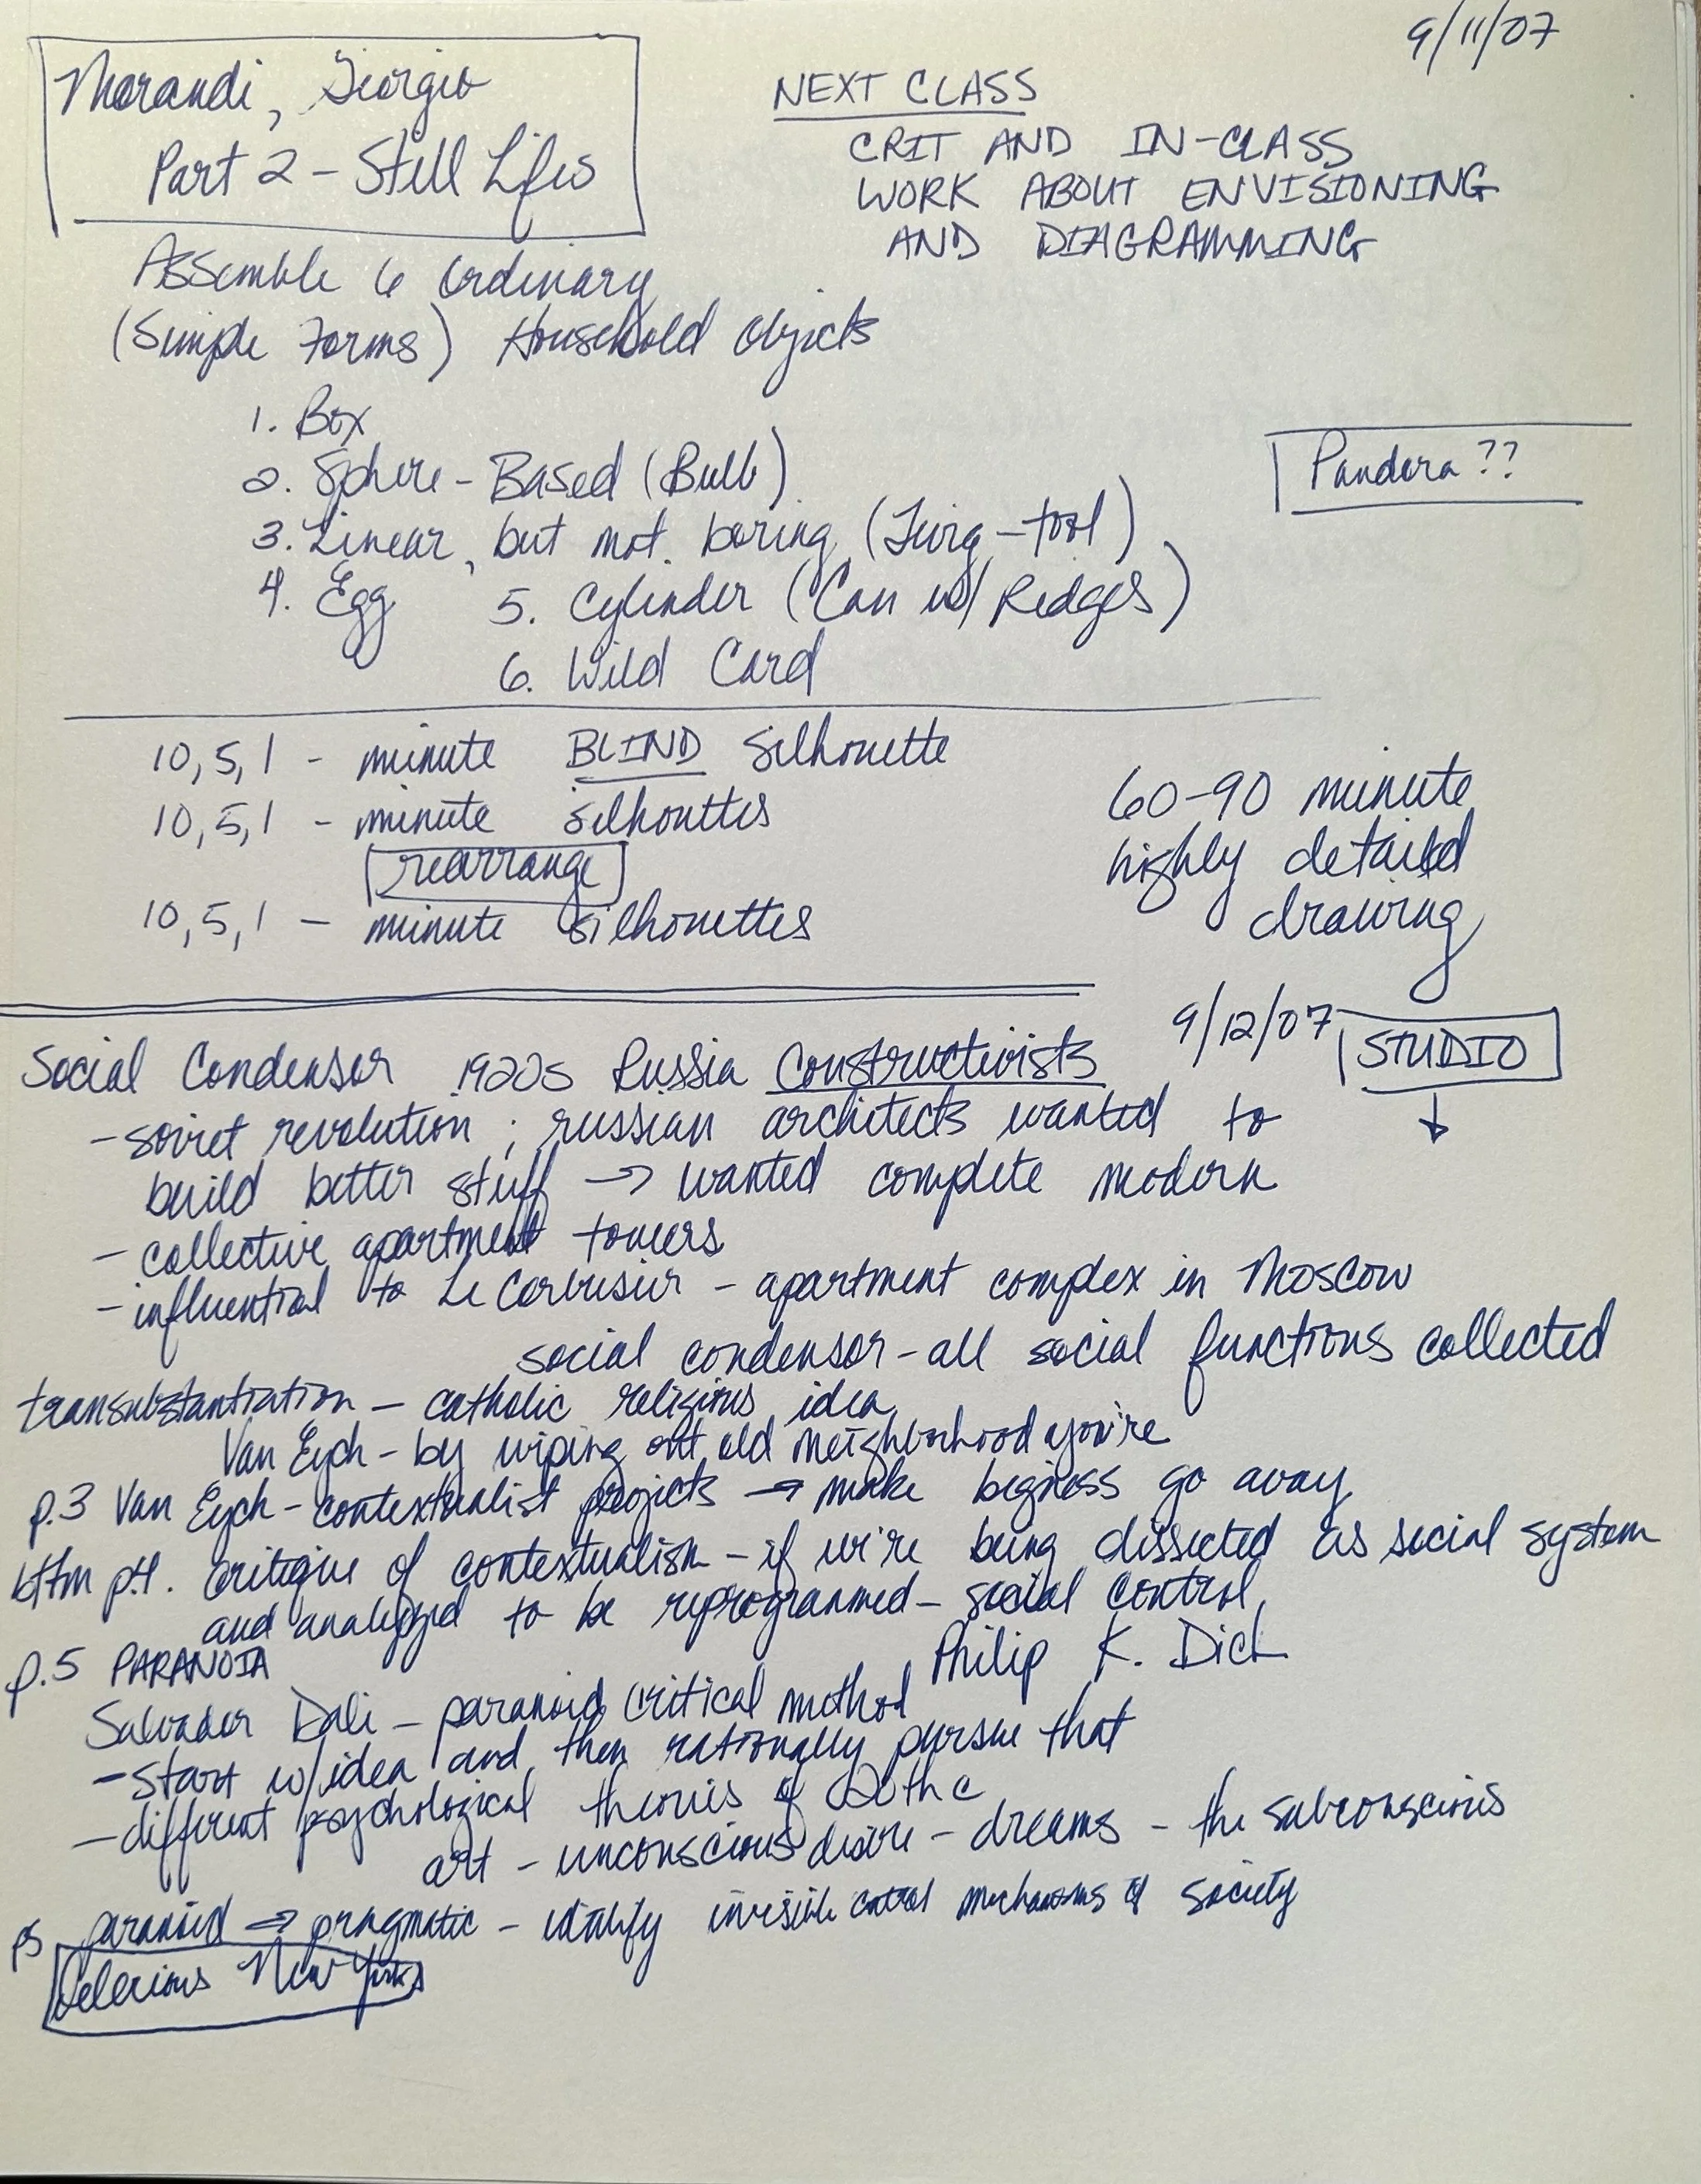 9/11/07
Morandi, Giorgio
Part 2 - Still Lifes
NEXT CLASS
CRIT AND IN-CLASS
WORK ABOUT ENVISIONING
AND DIAGRAMMING
Assemble 6 Ordinary
(Simple Forms) Household Objects
1. Box
2. Sphere - Based (Bulb)
3. Linear, but not boring (Twig - tool)
4. Egg 5. Cylinder (Can w/ Ridges)
6. Wild Card
Pandora ??
10, 5, 1 - minute BLIND Silhouette
10, 5, 1 - minute silhouttes
rearrange
10, 5, 1 - minute silhouettes
60-90 minute
highly detailed
drawing
9/12/07 STUDIO
Social Condensor 1920s Russia Constructivists
- soviet revolution ; russian architects wanted to
build better stuff → wanted complete modern
- collective apartment towers
- influential to Le Corbusier - apartment complex in Moscow
social condensor - all social functions collected
transubstantiation - catholic religious idea
Van Eych - by wiping out old neighborhood you're
p.3 Van Eych - contextualist projects → make bigness go away
bttm p.4. critique of contextualism - if we're being dissected as social system
and analyzed to be reprogrammed - social control
p.5 PARANOIA Philip K. Dick
Salvador Dali - paranoid critical method
- start w/idea and then rationally pursue that
- different psychological theories of 20th c
art - unconscious desire - dreams - the subconscious
p5 paranoid ⇒ pragmatic - identify invisible control mechanisms of society
Delerious New York